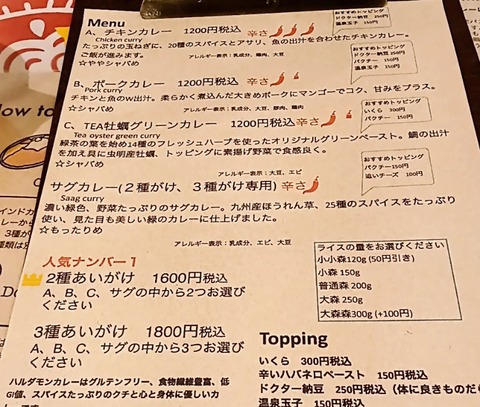 Menu
A、チキンカレー 1200円税込 辛さ
Chicken curry
たっぷりの玉ねぎに、20種のスパイスとアサリ、魚の出汁を合わせたチキンカレー。
ご飯が進みます。
アレルギー表示：乳成分、鶏肉、大豆
☆ややシャバめ
おすすめトッピング
ドクター納豆 250円
パクチー 150円
温泉玉子 150円
B、ポークカレー 1200円税込 辛さ
Pork curry
チキンと魚のW出汁。柔らかく煮込んだ大きめポークにマンゴーでコク、甘みをプラス。
☆シャバめ
アレルギー表示：乳成分、大豆、豚肉、鶏肉
おすすめトッピング
ドクター納豆 250円
パクチー 150円
温泉玉子 150円
C、TEA牡蠣グリーンカレー 1200円税込 辛さ
Tea oyster green curry
緑茶の葉を始め14種のフレッシュハーブを使ったオリジナルグリーンペースト。鯛の出汁
を加え具に虫明産牡蠣、トッピングに素揚げ野菜で食感良く。
☆シャバめ
アレルギー表示：大豆、エビ
おすすめトッピング
いくら 300円
パクチー 150円
サグカレー(2種がけ、3種がけ専用) 辛さ
Saag curry
濃い緑色、野菜たっぷりのサグカレー。九州産ほうれん草、25種のスパイスをたっぷり
使い、見た目も美しい緑のカレーに仕上げました。
☆もったりめ
アレルギー表示：乳成分、エビ、大豆
おすすめトッピング
パクチー150円
追いチーズ 100円
人気ナンバー1
2種あいがけ 1600円税込
A、B、C、サグの中から2つお選び
ください
3種あいがけ 1800円税込
A、B、C、サグの中から3つお選び
ください
ハルダモンカレーはグルテンフリー、食物繊維豊富、低
GI値、スパイスたっぷりのクチと心と身体に優しいカ
ライスの量をお選びください
小小森120g (50円引き)
小森 150g
普通森 200g
大森 250g
大森森300g (+100円)
Topping
いくら 300円税込
辛いハバネロペースト 150円税込
ドクター納豆 250円税込（体に良きものだら
温泉玉子 150円税込